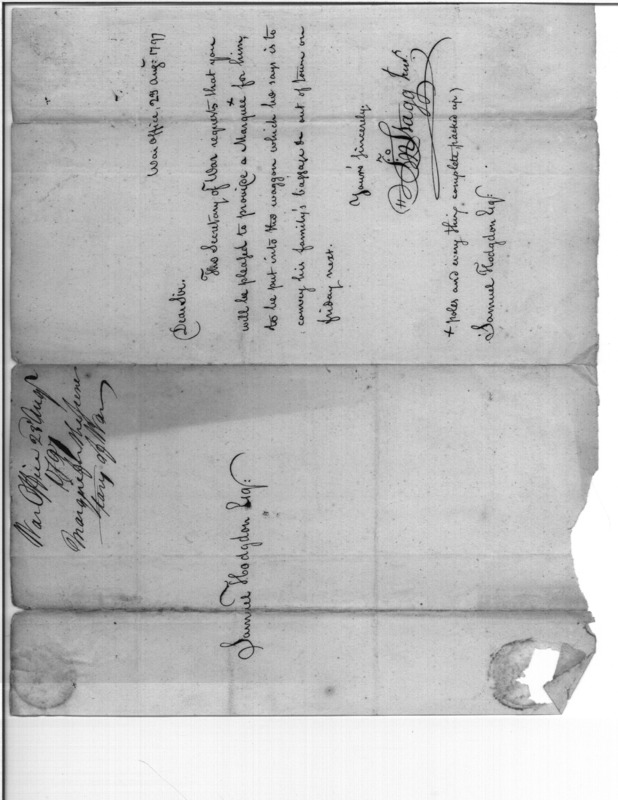 War office 29 Aug: 1797
Dear Sir.
The Secretary of War requests that you
will be pleased to provide a Marquee + for him,
to be put into the waggon which he says is to
convey his family's baggage out of town on
friday next.
Yours sincerely,
Jno Stagg Junr
+ poles and every thing complete packed up)
Samuel Hodgdon Esqr.
War Office 29 Augt
1797
Marquee for the Secre
tary of War
Samuel Hodgdon Esqr: